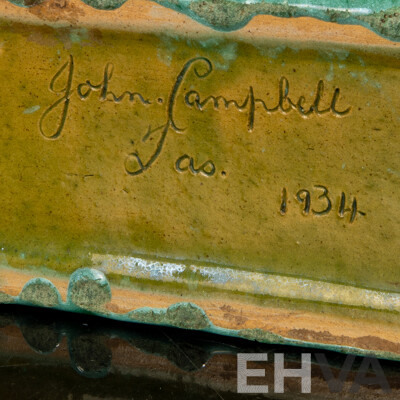 John. Campbell
Tas.
1934
EHVA